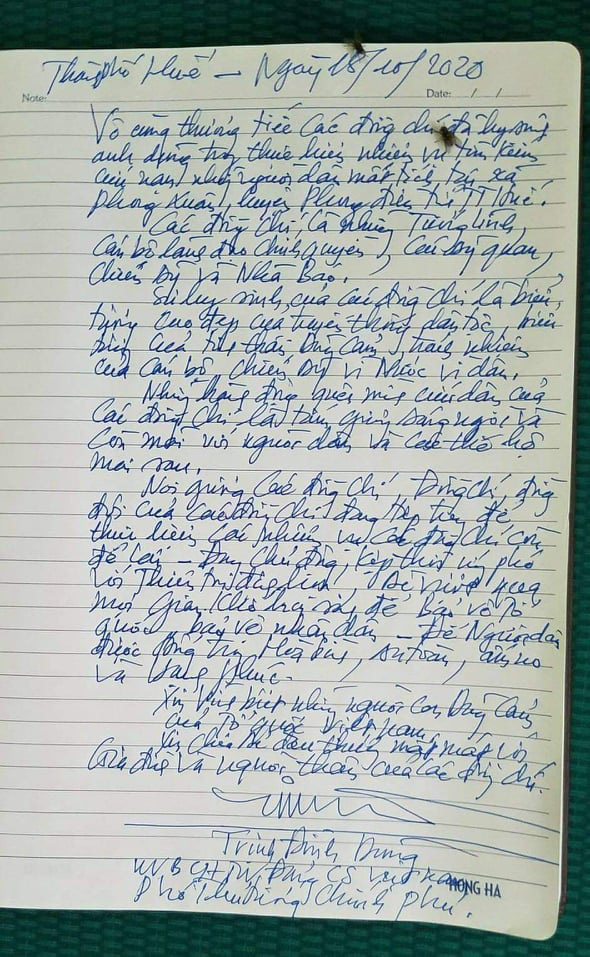 Thành phố Huế – Ngày 18/10/2020
Note: Date: / /
Vô cùng thương tiếc các đồng chí đã hy sinh
anh dũng trong thực hiện nhiệm vụ tìm kiếm
cứu nạn những người dân mất tích tại xã
Phong Xuân, huyện Phong Điền, tỉnh TT Huế.
Các đồng chí, là những Tướng lĩnh,
Cán bộ lãnh đạo chính quyền, Cán bộ quân,
Chiến sỹ và Nhà Báo.
Sự hy sinh của các đồng chí là biểu
tượng cao đẹp của truyền thống dân tộc, biểu
tượng của tinh thần Dũng Cảm, trách nhiệm
của Cán bộ, chiến sỹ vì Nước vì dân.
Những hành động quên mình cứu dân của
Các đồng Chí là tấm gương sáng ngời và
Còn mãi với người dân và các thế hệ
mai sau.
Noi gương Các đồng chí, Đồng chí, đồng
đội của các đồng chí đang tiếp tục để
thực hiện các nhiệm vụ các đồng chí còn
để lại – Luôn chủ động, kịp thời ứng phó
với Thiên tai, vượt qua
mọi Gian khó để Bảo vệ Tổ
quốc, bảo vệ nhân dân – Để Người dân
được sống trong Hòa bình, An toàn, ấm no
và Hạnh phúc.
Xin Vĩnh biệt những người con Dũng Cảm
của Tổ quốc Việt Nam.
Xin chia sẻ đau thương mất mát với
Gia đình và người thân của các đồng chí.
Trịnh Đình Dũng
UVBCHTW Đảng CS Việt Nam
HONG HA
Phó Thủ tướng Chính phủ.